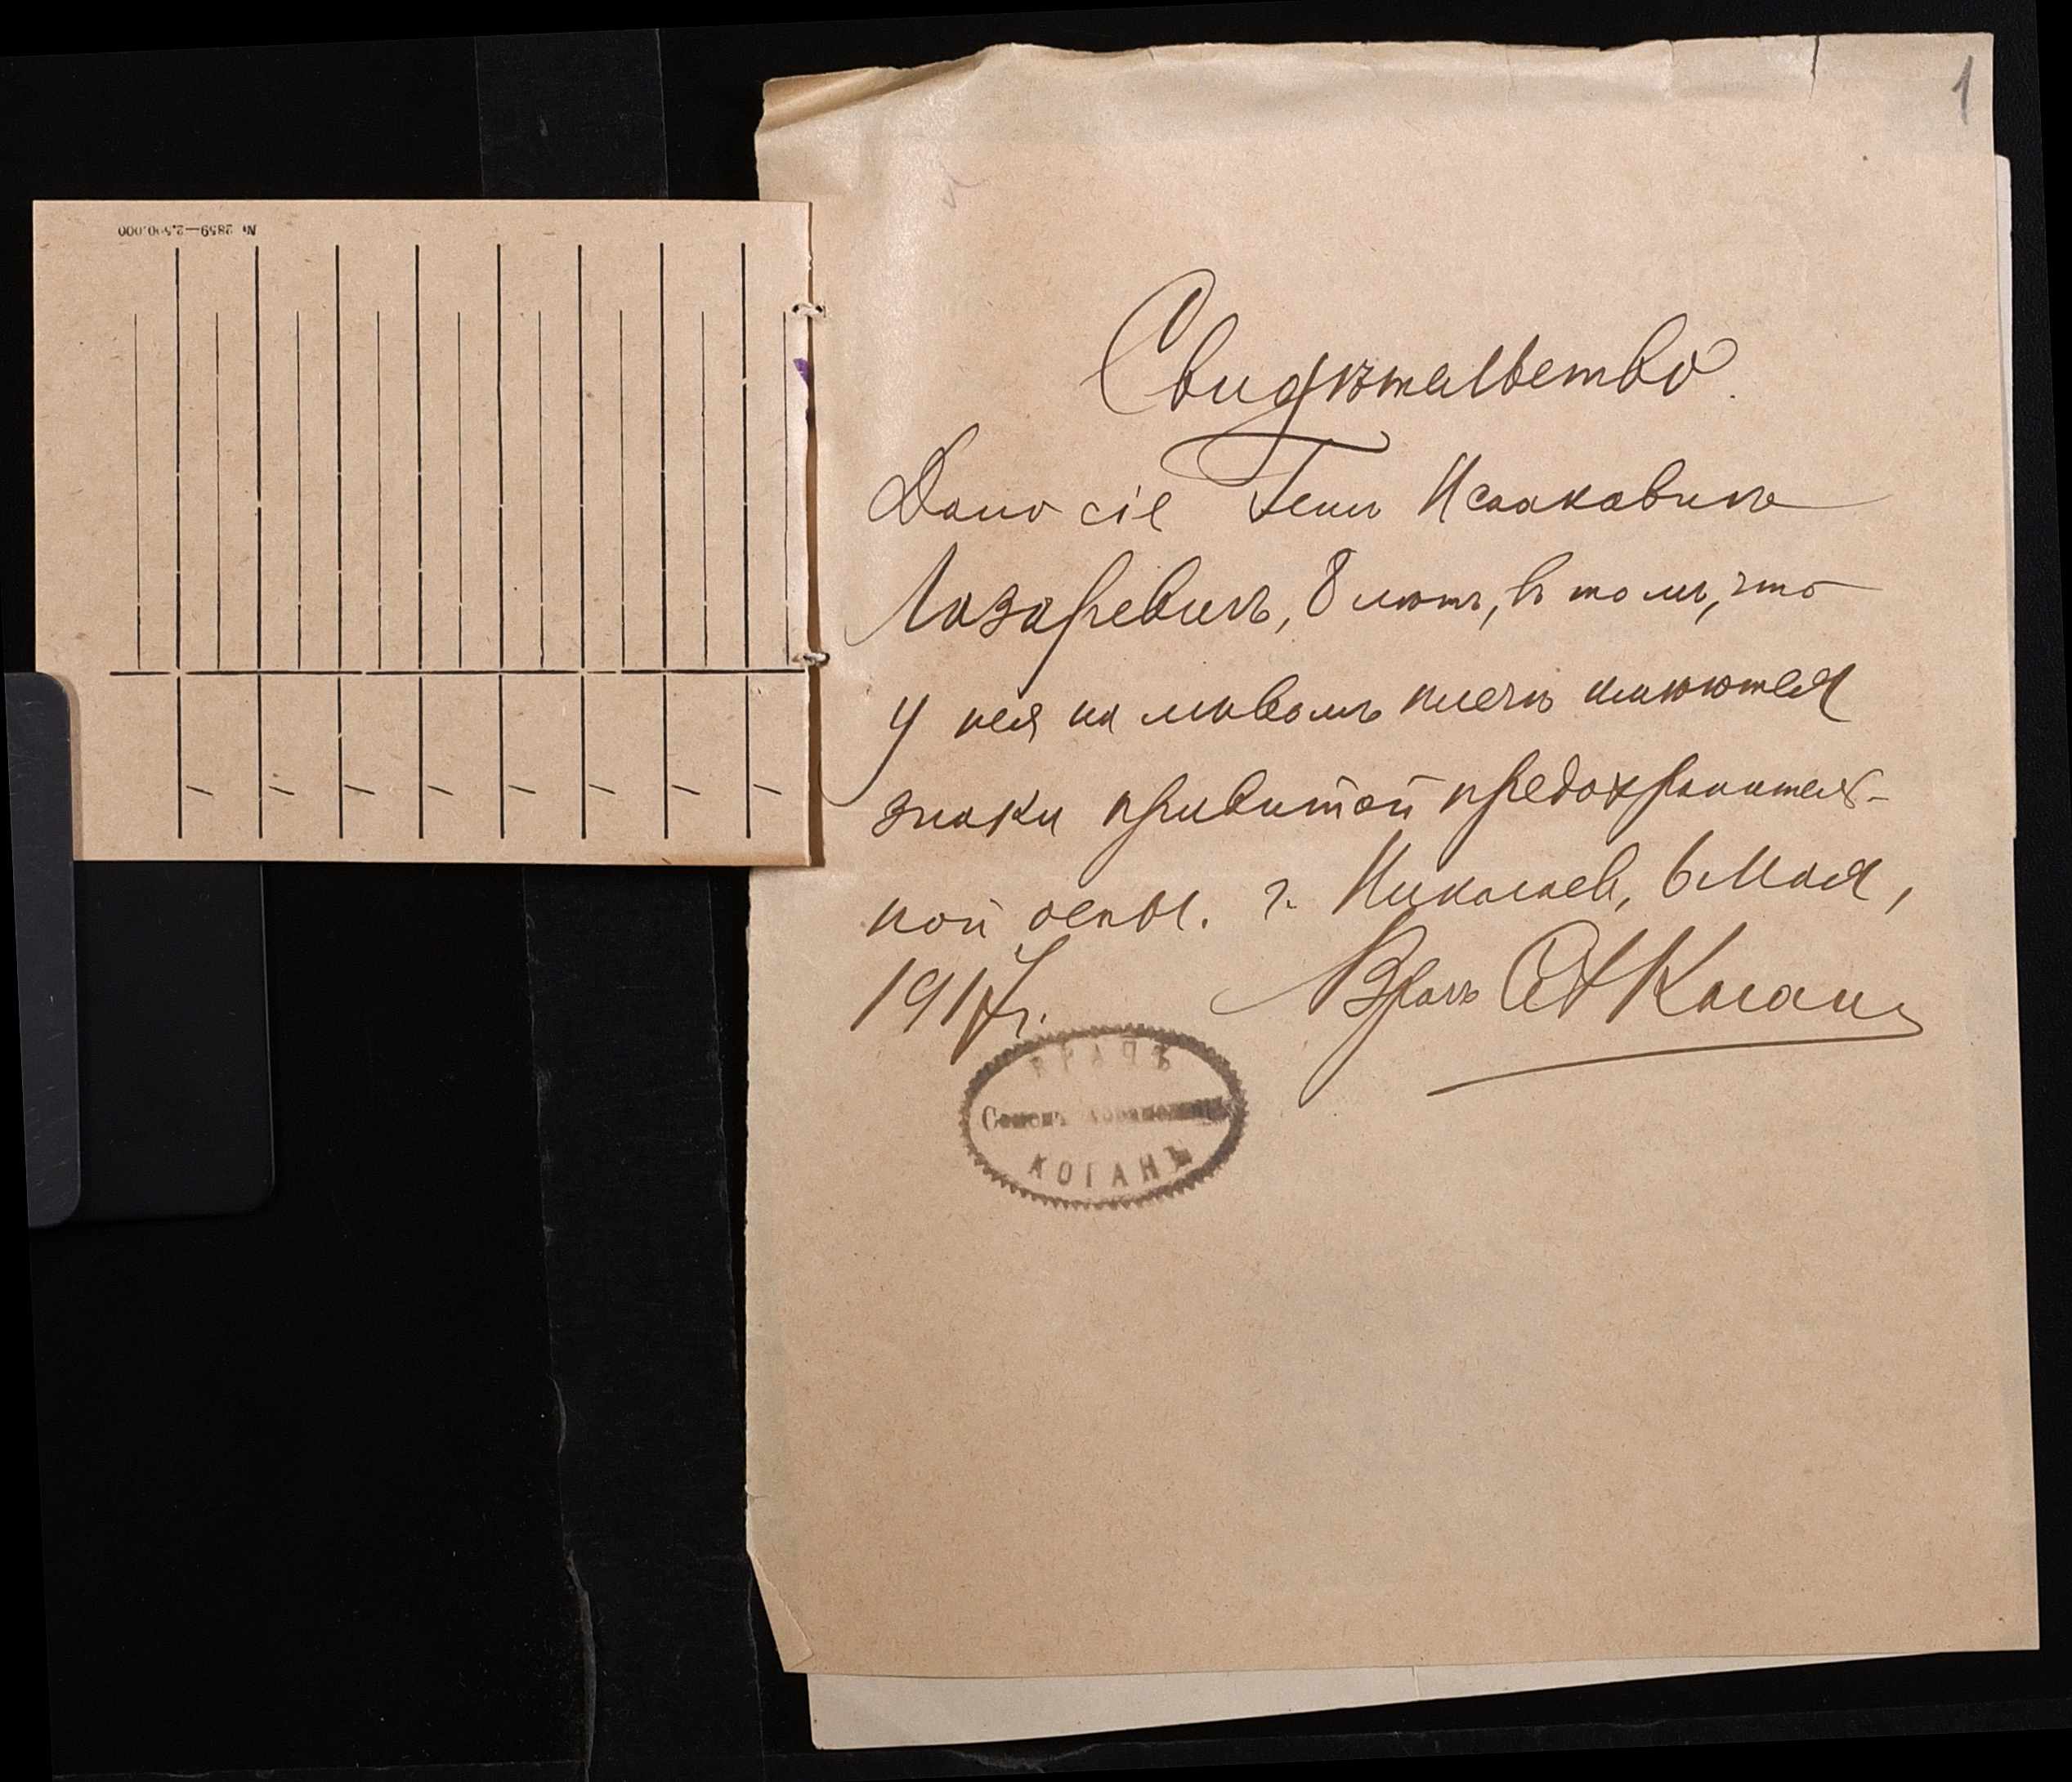 1
№ 2859—2.500.000
Свидѣтельство.
Дано сіе Гени Исааковнѣ
Лазаревичъ, 8 лѣтъ, въ томъ, что
у нея на лѣвомъ плечѣ имѣются
знаки привитой предохранитель-
ной оспы. г. Николаев, 6 Мая,
1917 г. Врачъ СА Коганъ
ВРАЧЪ
Семенъ Абрамовичъ
КОГАНЪ